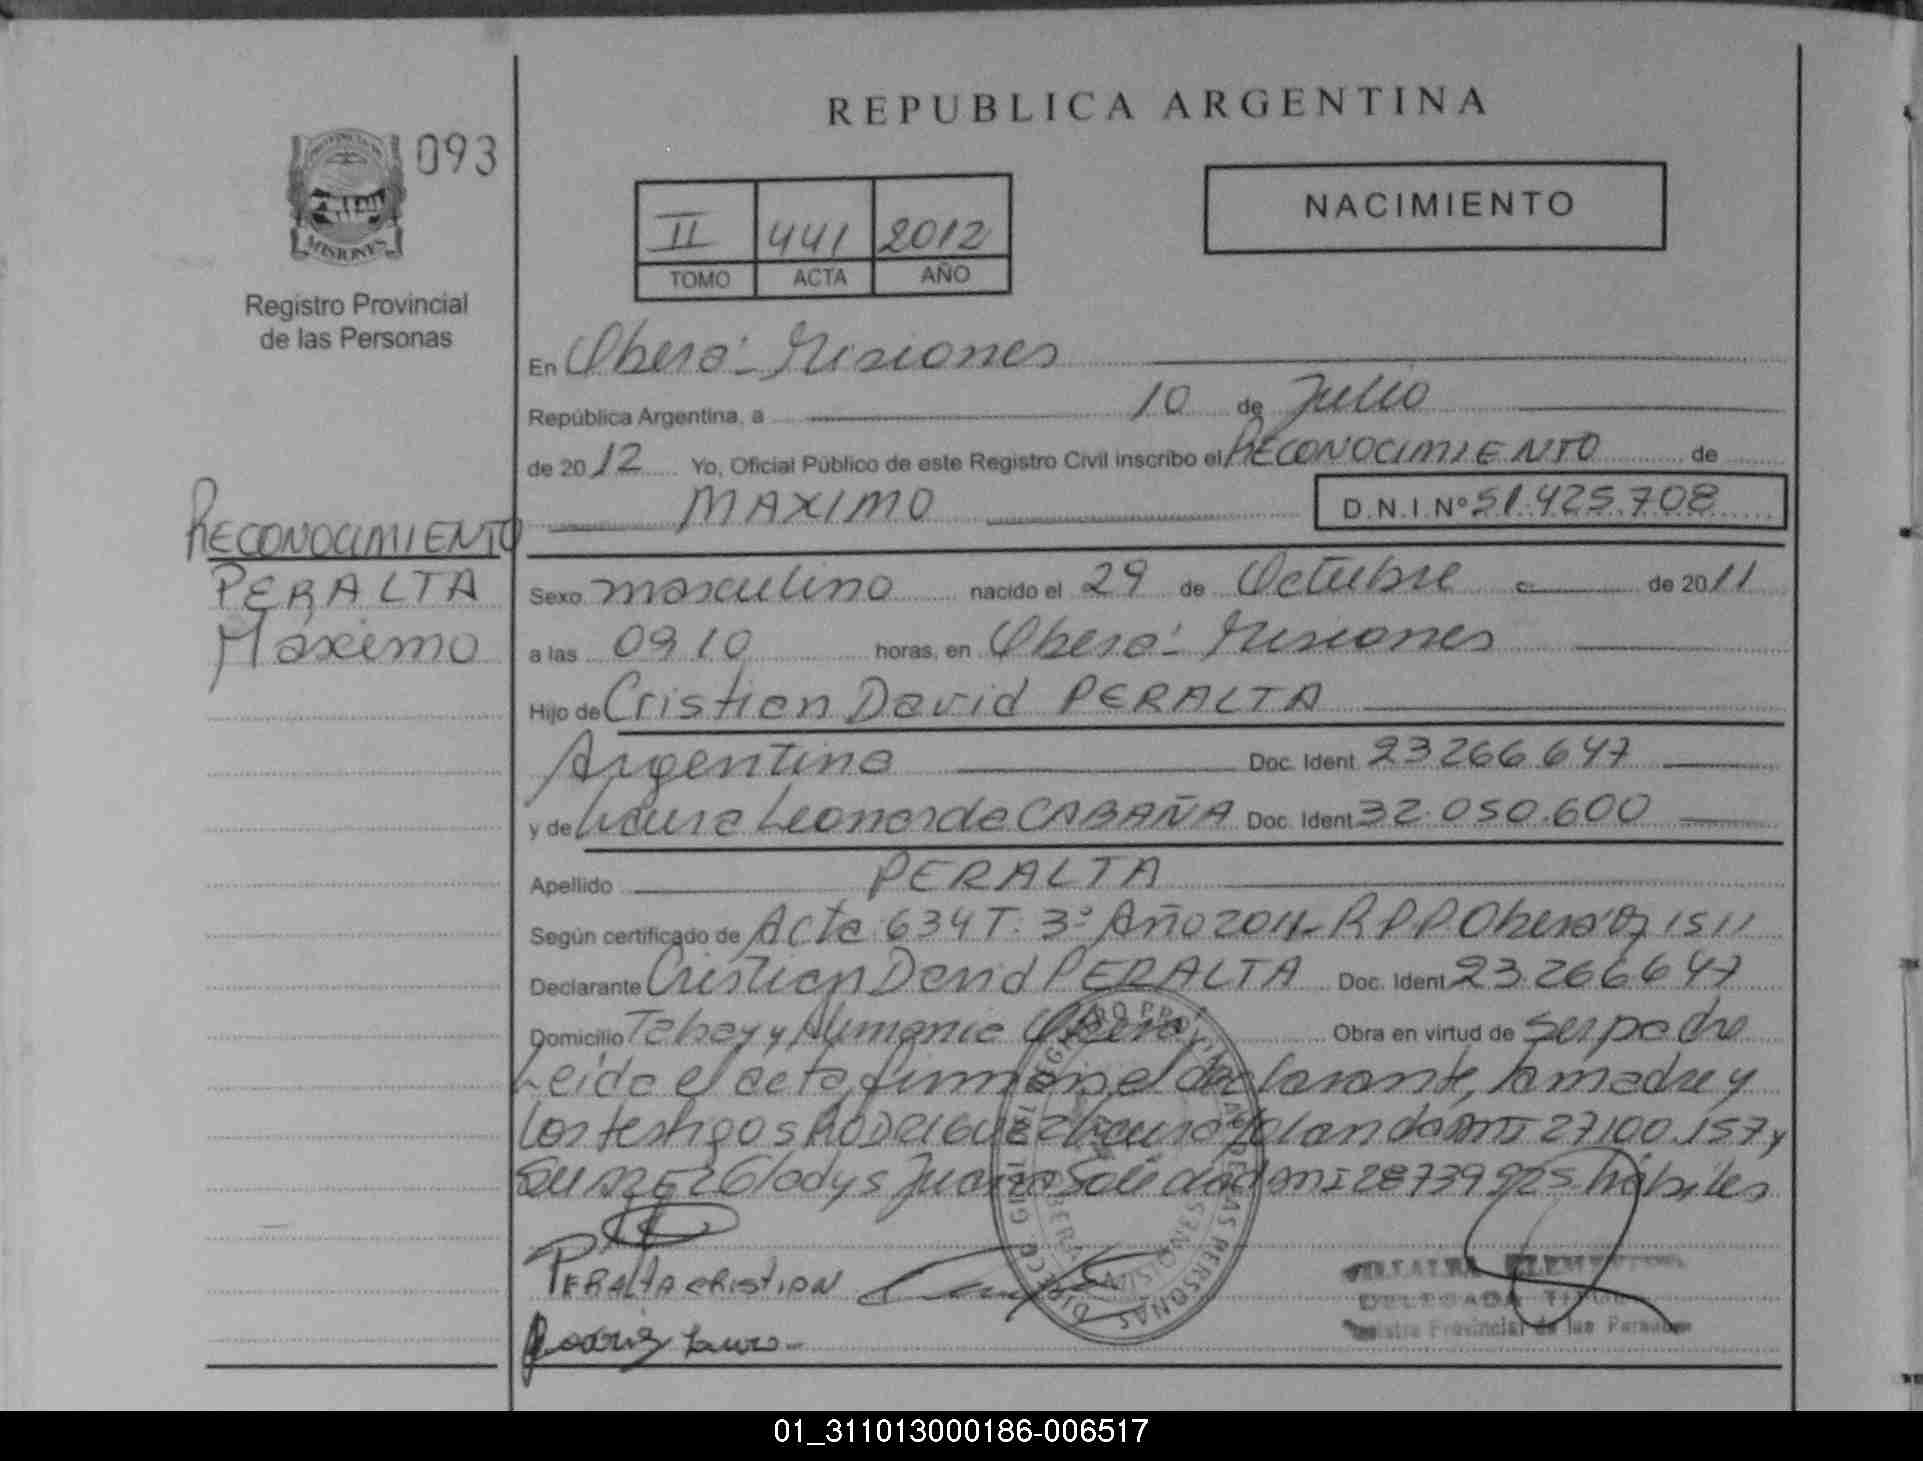 REPUBLICA ARGENTINA
093
MISIONES
Registro Provincial
de las Personas
II 441 2012
TOMO ACTA AÑO
NACIMIENTO
En Oberá - Misiones
República Argentina, a 10 de Julio
de 2012 Yo, Oficial Público de este Registro Civil inscribo el RECONOCIMIENTO de
MAXIMO D.N.I. Nº 51.425.708
RECONOCIMIENTO
PERALTA
Maximo
Sexo masculino nacido el 29 de Octubre de 2011
a las 09 10 horas, en Oberá - Misiones
Hijo de Cristian David PERALTA
Argentino Doc. Ident. 23 266 647
y de Laura Leonarda CABAÑA Doc. Ident. 32.050.600
Apellido PERALTA
Según certificado de Acta 634 T. 3º Año 2011 - R P P Oberá 1511
Declarante Cristian David PERALTA Doc. Ident. 23 266 647
Domicilio Tabay y Alemania Oberá Obra en virtud de ser padre
Leída el acta, firman el declarante, la madre y
los testigos RODRIGUEZ Laura Yolanda DNI 27100.157 y
Gladys Juana Soledad DNI 28739925 hábiles
PERALTA CRISTIAN
DIRECC. GRAL. DEL REGISTRO PROVINCIAL DE LAS PERSONAS
OBERA MISIONES
DELEGADA
Registro Provincial de las Personas
01_311013000186-006517